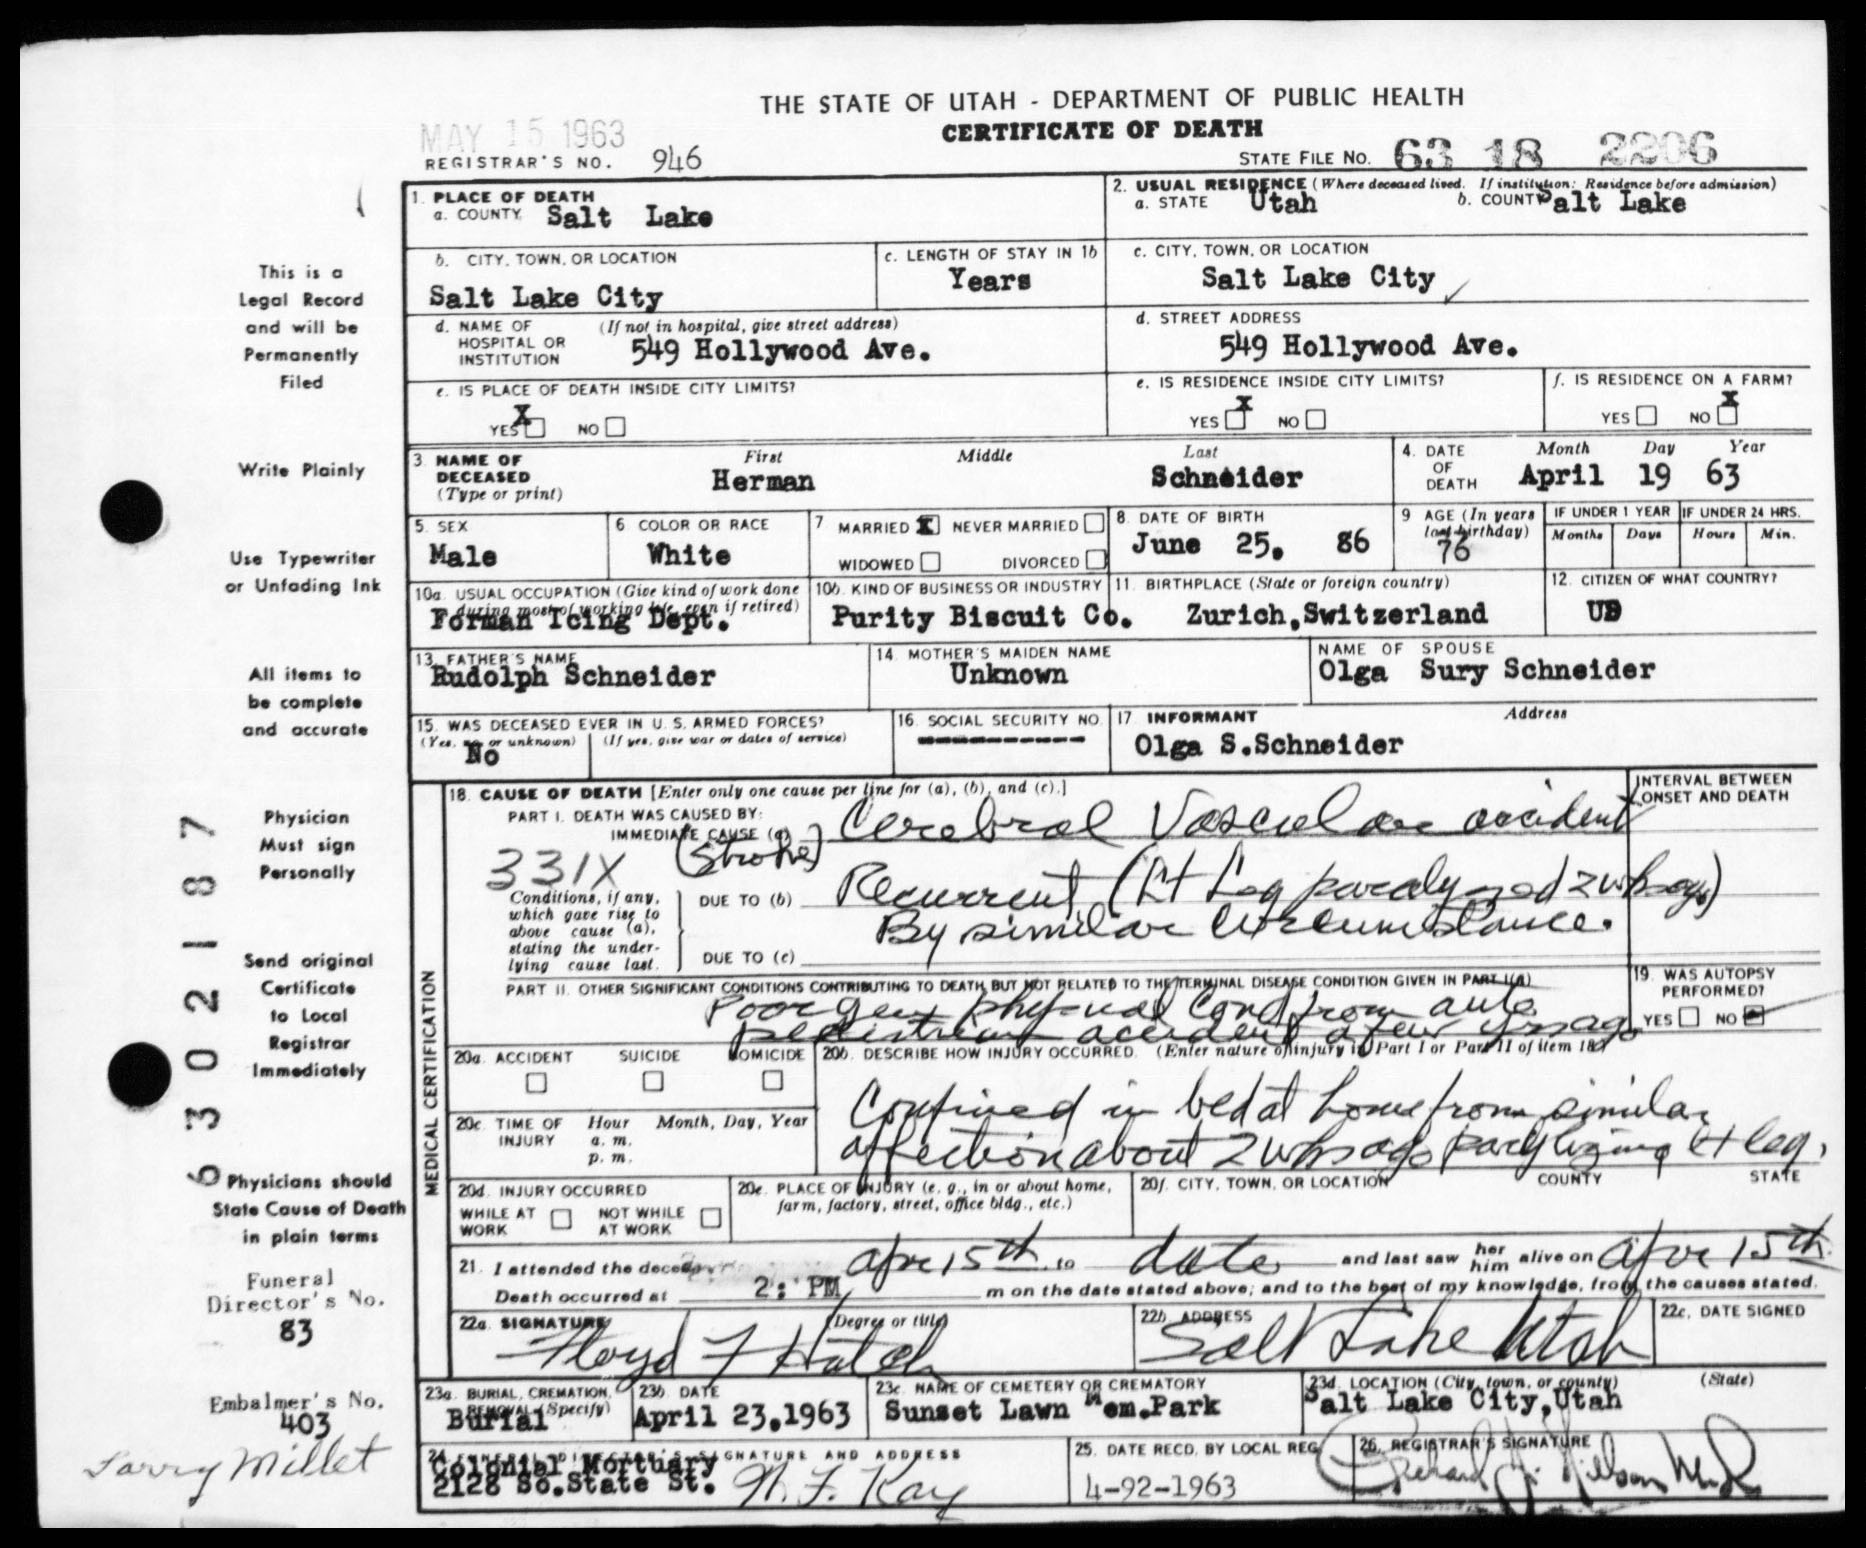 THE STATE OF UTAH - DEPARTMENT OF PUBLIC HEALTH
CERTIFICATE OF DEATH
MAY 15 1963
REGISTRAR'S NO. 946
STATE FILE NO. 63 18 2206
1. PLACE OF DEATH
a. COUNTY Salt Lake
2. USUAL RESIDENCE (Where deceased lived. If institution: Residence before admission)
a. STATE Utah b. COUNTY Salt Lake
b. CITY, TOWN, OR LOCATION
Salt Lake City
c. LENGTH OF STAY IN 1b
Years
c. CITY, TOWN, OR LOCATION
Salt Lake City
d. NAME OF HOSPITAL OR INSTITUTION (If not in hospital, give street address)
549 Hollywood Ave.
d. STREET ADDRESS
549 Hollywood Ave.
e. IS PLACE OF DEATH INSIDE CITY LIMITS?
YES X NO
e. IS RESIDENCE INSIDE CITY LIMITS?
YES X NO
f. IS RESIDENCE ON A FARM?
YES NO X
3. NAME OF DECEASED (Type or print)
First Middle Last
Herman Schneider
4. DATE OF DEATH
Month Day Year
April 19 63
5. SEX
Male
6 COLOR OR RACE
White
7 MARRIED X NEVER MARRIED
WIDOWED DIVORCED
8. DATE OF BIRTH
June 25. 86
9 AGE (In years last birthday)
76
IF UNDER 1 YEAR
Months Days
IF UNDER 24 HRS.
Hours Min.
10a. USUAL OCCUPATION (Give kind of work done during most of working life, even if retired)
Forman Icing Dept.
10b. KIND OF BUSINESS OR INDUSTRY
Purity Biscuit Co.
11. BIRTHPLACE (State or foreign country)
Zurich,Switzerland
12. CITIZEN OF WHAT COUNTRY?
US
13. FATHER'S NAME
Rudolph Schneider
14. MOTHER'S MAIDEN NAME
Unknown
NAME OF SPOUSE
Olga Sury Schneider
15. WAS DECEASED EVER IN U. S. ARMED FORCES?
(Yes, no, or unknown) (If yes, give war or dates of service)
No
16. SOCIAL SECURITY NO.
-------------
17. INFORMANT Address
Olga S.Schneider
18. CAUSE OF DEATH [Enter only one cause per line for (a), (b), and (c).]
INTERVAL BETWEEN ONSET AND DEATH
PART I. DEATH WAS CAUSED BY:
IMMEDIATE CAUSE (a) Cerebral Vascular accident
(Stroke)
331X
Conditions, if any, which gave rise to above cause (a), stating the underlying cause last.
DUE TO (b) Recurrent (Lt Leg paralyzed 2 wks ago)
By similar circumstance.
DUE TO (c)
PART II. OTHER SIGNIFICANT CONDITIONS CONTRIBUTING TO DEATH BUT NOT RELATED TO THE TERMINAL DISEASE CONDITION GIVEN IN PART I(a)
Poor gen physical cond from auto
pedestrian accident a few yrs ago
19. WAS AUTOPSY PERFORMED?
YES NO
MEDICAL CERTIFICATION
20a. ACCIDENT SUICIDE HOMICIDE
20b. DESCRIBE HOW INJURY OCCURRED. (Enter nature of injury in Part I or Part II of item 18.)
Confined in bed at home from similar
affection about 2 wks ago paralyzing Lt leg.
20c. TIME OF INJURY Hour Month, Day, Year
a. m.
p. m.
20d. INJURY OCCURRED
WHILE AT WORK NOT WHILE AT WORK
20e. PLACE OF INJURY (e. g., in or about home, farm, factory, street, office bldg., etc.)
20f. CITY, TOWN, OR LOCATION COUNTY STATE
21. I attended the deceased apr 15th to date and last saw her him alive on apr 15th
Death occurred at 2: PM m on the date stated above; and to the best of my knowledge, from the causes stated.
22a. SIGNATURE (Degree or title)
Floyd F Hatch
22b. ADDRESS
Salt Lake Utah
22c. DATE SIGNED
23a. BURIAL, CREMATION, REMOVAL (Specify)
Burial
23b. DATE
April 23,1963
23c. NAME OF CEMETERY OR CREMATORY
Sunset Lawn Mem.Park
23d. LOCATION (City, town, or county) (State)
Salt Lake City,Utah
24. FUNERAL DIRECTOR'S SIGNATURE AND ADDRESS
Colonial Mortuary
2128 So.State St. M. F. Kay
25. DATE RECD. BY LOCAL REG.
4-92-1963
26. REGISTRAR'S SIGNATURE
This is a
Legal Record
and will be
Permanently
Filed
Write Plainly
Use Typewriter
or Unfading Ink
All items to
be complete
and accurate
Physician
Must sign
Personally
Send original
Certificate
to Local
Registrar
Immediately
Physicians should
State Cause of Death
in plain terms
Funeral
Director's No.
83
Embalmer's No.
403
Larry Millet
6302187